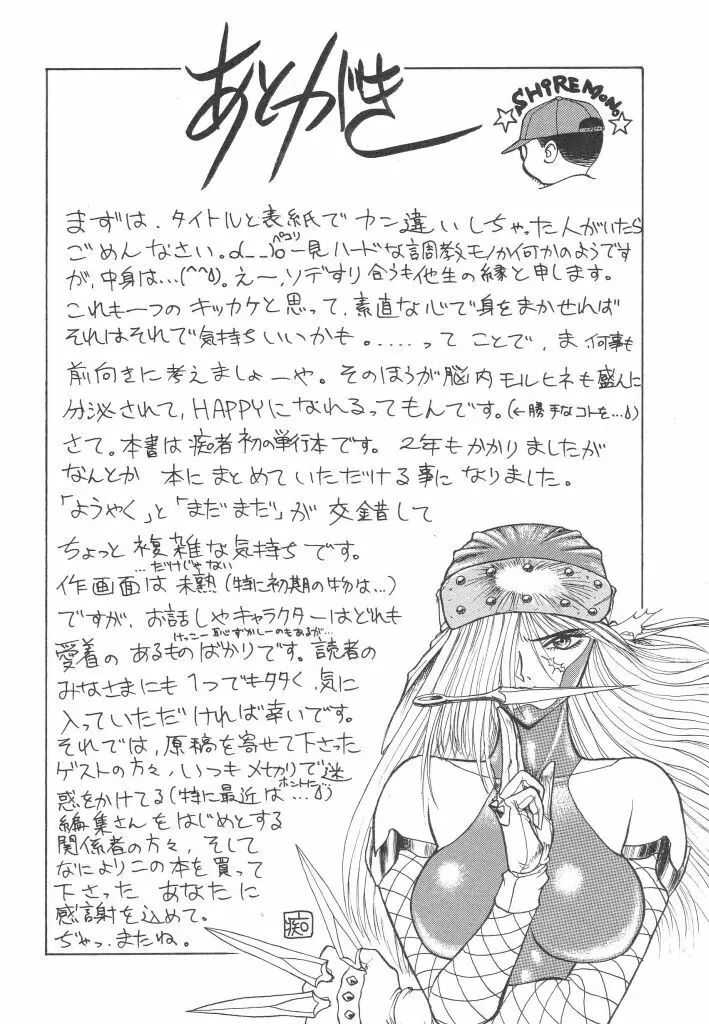 あとがき
SHIREMONO
まずは、タイトルと表紙でカン違いしちゃった人がいたら
ごめんなさい。o(_ _)o ペコリ 一見ハードな調教モノか何かのようです
が、中身は…(^^;)。えー、ソデすり合うも他生の縁と申します。
これも一つのキッカケと思って、素直な心で身をまかせれば
それはそれで気持ちいいかも。.....って ことで、ま、何事も
前向きに考えましょーや。そのほうが脳内モルヒネも盛んに
分泌されて、HAPPYになれるってもんです。(←勝手なコトを…)
さて。本書は痴者初の単行本です。2年もかかりましたが
なんとか 本にまとめていただける事になりました。
「ようやく」と「まだまだ」が 交錯して
ちょっと 複雑な気持ちです。
…だけじゃない
作画面は 未熟(特に初期の物は…)
ですが、お話しやキャラクターはどれも
けっこー恥ずかしーのもあるが…
愛着の あるものばかりです。読者の
みなさまにも 1つでも多く、気に
入っていただければ幸いです。
それでは、原稿を寄せて下さった
ゲストの方々、いつも〆切りで迷
ホントに…
惑をかけてる(特に最近は…)
編集さんをはじめとする
関係者の方々、そして
なによりこの本を買って
下さった あなたに
感謝を込めて。
ぢゃっ、またね。
痴